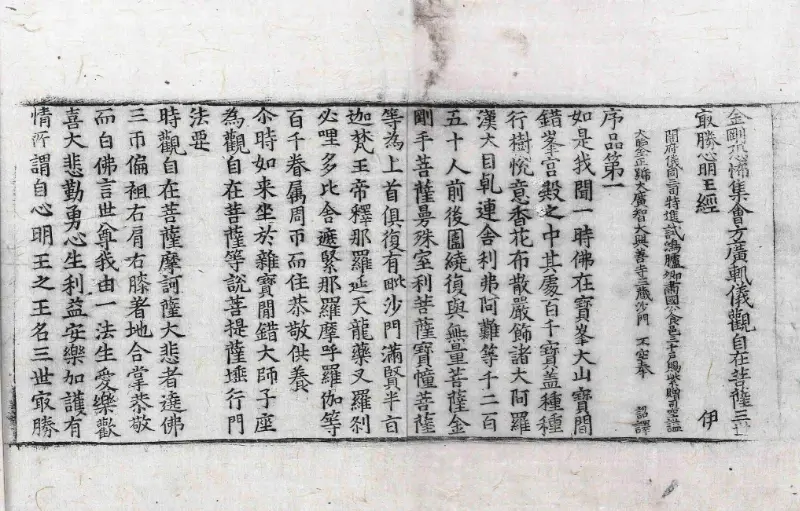 金剛恐怖集會方廣軌儀觀自在菩薩三世
㝡勝心明王經　伊
開府儀同三司特進試鴻臚卿肅國公食邑三千戶賜紫贈司空謚
大鑒正號大廣智大興善寺三藏沙門　不空奉　詔譯
序品第一
如是我聞一時佛在寶峯大山寶間
錯峯宮殿之中其處百千寶蓋種種
行樹悅意香花布散嚴飾諸大阿羅
漢大目乹連舍利弗阿難等千二百
五十人前後圍繞復與無量菩薩金
剛手菩薩曼殊室利菩薩寶幢菩薩
等為上首俱復有毗沙門滿賢半㫖
迦梵王帝釋那羅延天龍藥叉羅刹
必哩多比舍遮緊那羅摩呼羅伽等
百千眷属周帀而住恭敬供養
尒時如來坐於雜寶閒錯大師子座
為觀自在菩薩等說菩提薩埵行門
法要
時觀自在菩薩摩訶薩大悲者遶佛
三帀偏袒右肩右膝著地合掌恭敬
而白佛言世尊我由一法生愛樂歡
喜大悲勤勇心生利益安樂加護有
情所謂自心明王之王名三世㝡勝